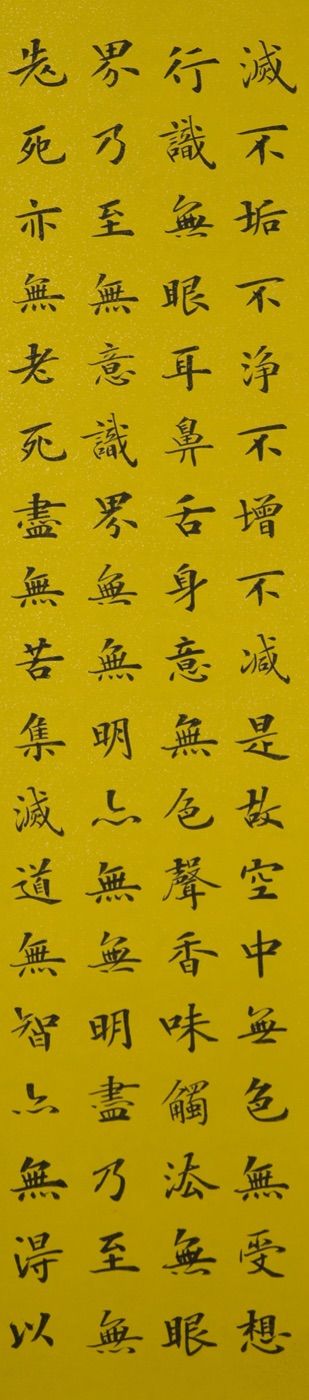 滅不垢不淨不增不減是故空中無色無受想
行識無眼耳鼻舌身意無色聲香味觸法無眼
界乃至無意識界無無明亦無無明盡乃至無
老死亦無老死盡無苦集滅道無智亦無得以